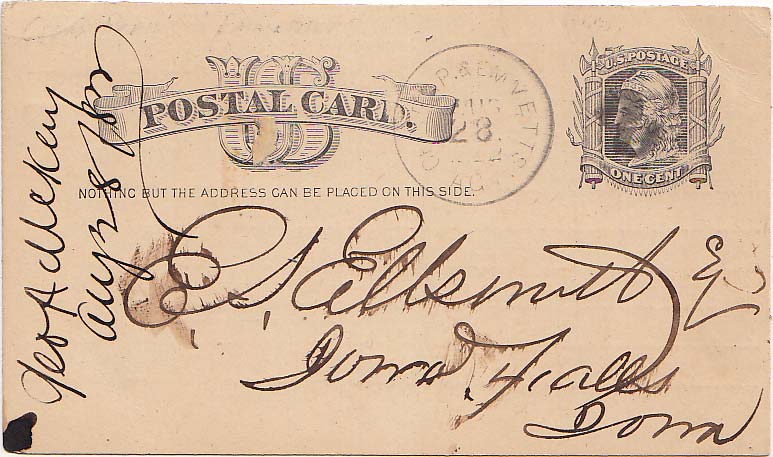 U.S. POSTAGE
US
POSTAL CARD.
ONE CENT
NOTHING BUT THE ADDRESS CAN BE PLACED ON THIS SIDE.
AUG
28
E. S. Ellsworth Esq
Iowa Falls
Iowa
Geo A McKay
Aug 28